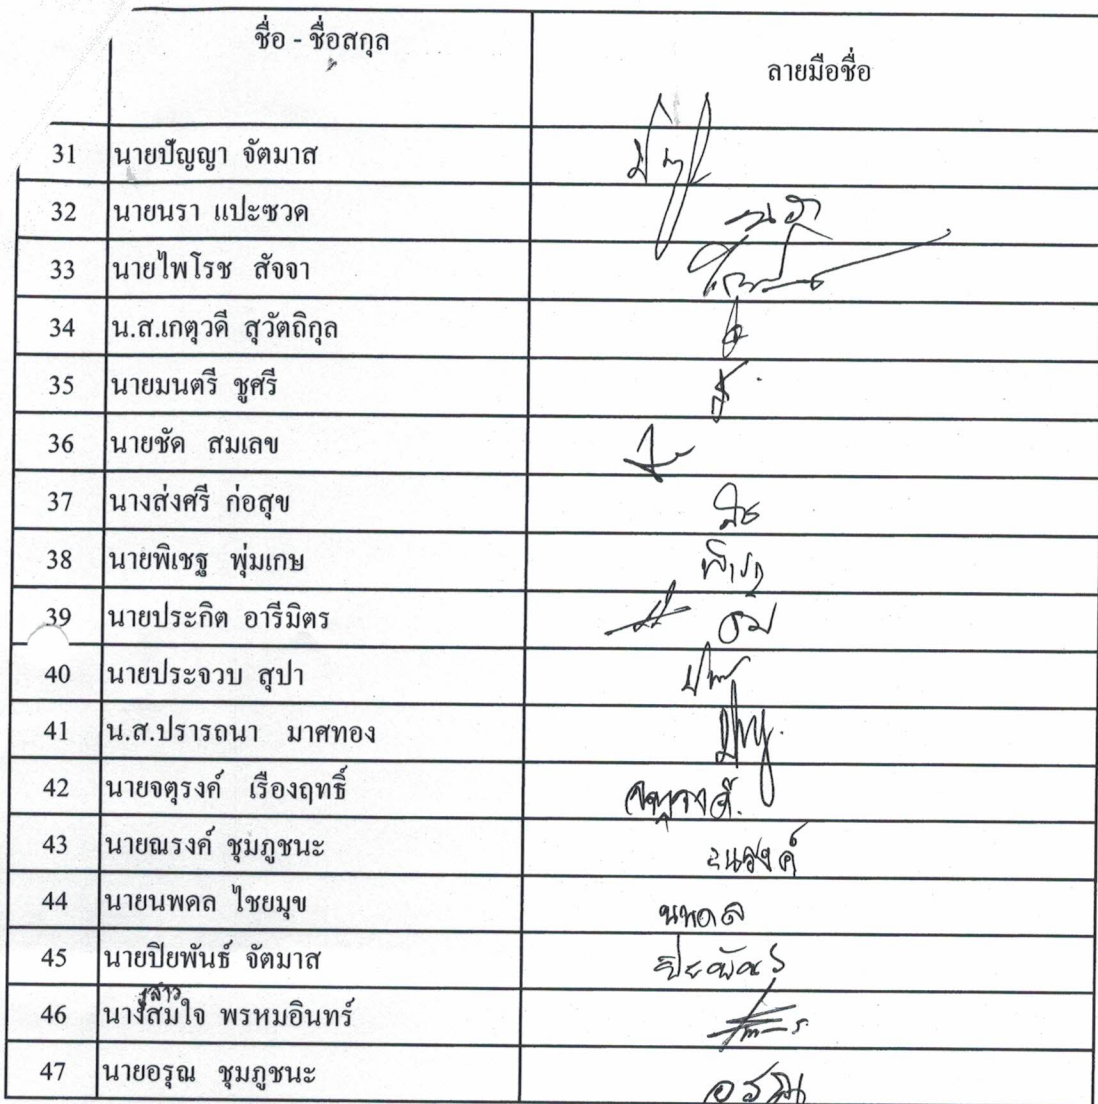 ชื่อ - ชื่อสกุล
ลายมือชื่อ
31 นายปัญญา จัตมาส
32 นายนรา แปะซวด
33 นายไพโรช สัจจา
34 น.ส.เกตุวดี สุวัตถิกุล
35 นายมนตรี ชูศรี
36 นายชัด สมเลข
37 นางส่งศรี ก่อสุข
38 นายพิเชฐ พุ่มเกษ
39 นายประกิต อารีมิตร
40 นายประจวบ สุปา
41 น.ส.ปรารถนา มาศทอง
42 นายจตุรงค์ เรืองฤทธิ์ จตุรงค์.
43 นายณรงค์ ชุมภูชนะ ณรงค์
44 นายนพดล ไชยมุข นพดล
45 นายปิยพันธ์ จัตมาส ปิยพันธ์
สาว
46 นางสมใจ พรหมอินทร์
47 นายอรุณ ชุมภูชนะ อรุณ